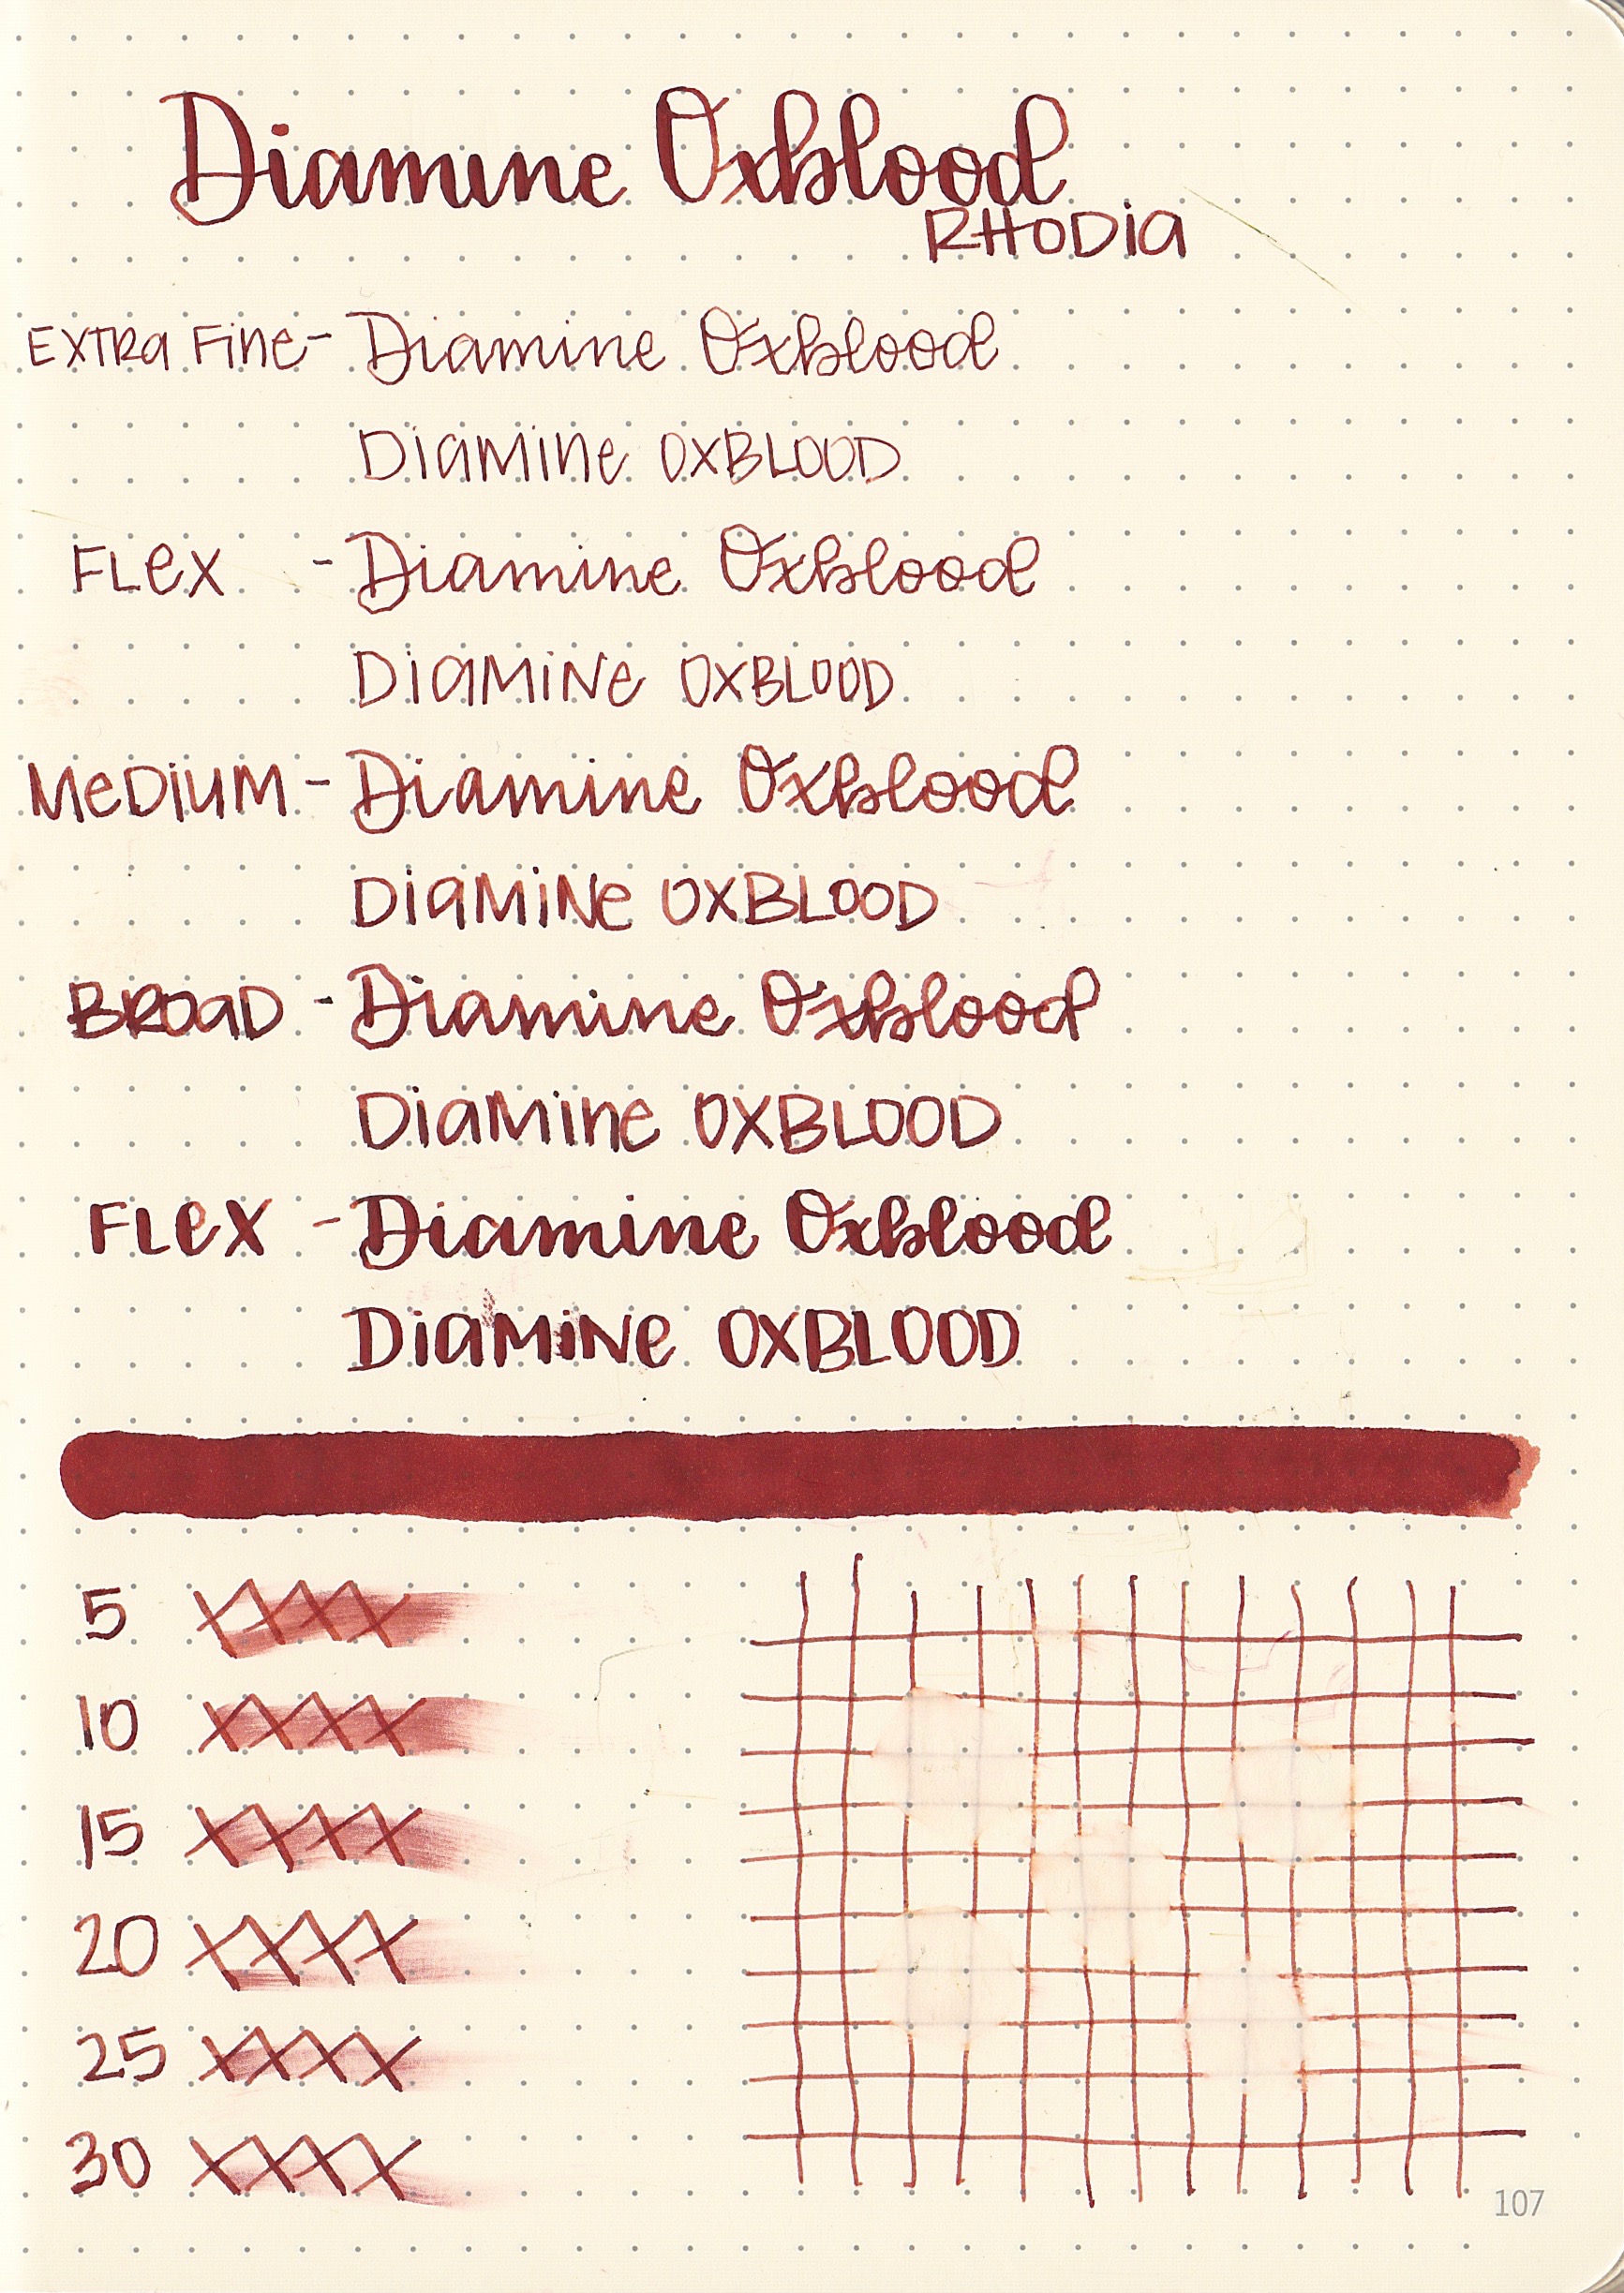 Diamine Oxblood
RHODia
EXTRa Fine - Diamine Oxblood
DiaMine OXBLOOD
FLeX - Diamine Oxblood
DiaMiNe OXBLOOD
MeDiUM - Diamine Oxblood
DiaMiNe OXBLOOD
BROaD - Diamine Oxblood
DiaMine OXBLOOD
FLeX - Diamine Oxblood
DiaMiNe OXBLOOD
5 XXXX
10 XXXX
15 XXXX
20 XXXX
25 XXXX
30 XXXX
107